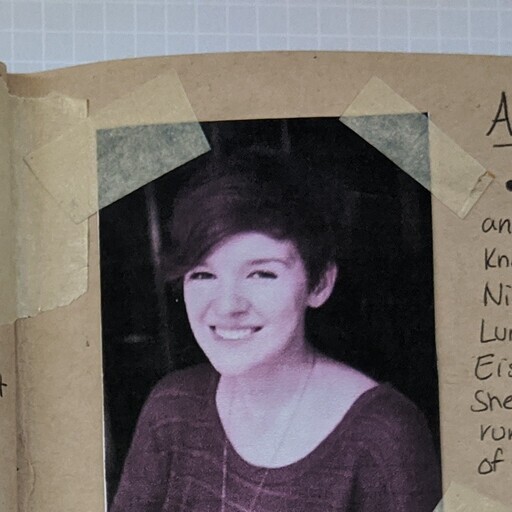 A
• 
an
Kn
Ni
Lu
Eis
She
run
of